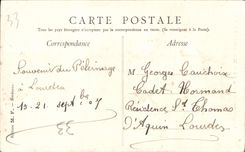 CARTE POSTALE
Tous les pays étrangers n'acceptent pas la correspondance au recto. (Se renseigner à la Poste).
Correspondance
Adresse
Souvenir du Pèlerinage
à Lourdes
13-21 sept bre 07
M. Georges Cauchoix
Cadet Normand
Résidence St Thomas
d'Aquin Lourdes